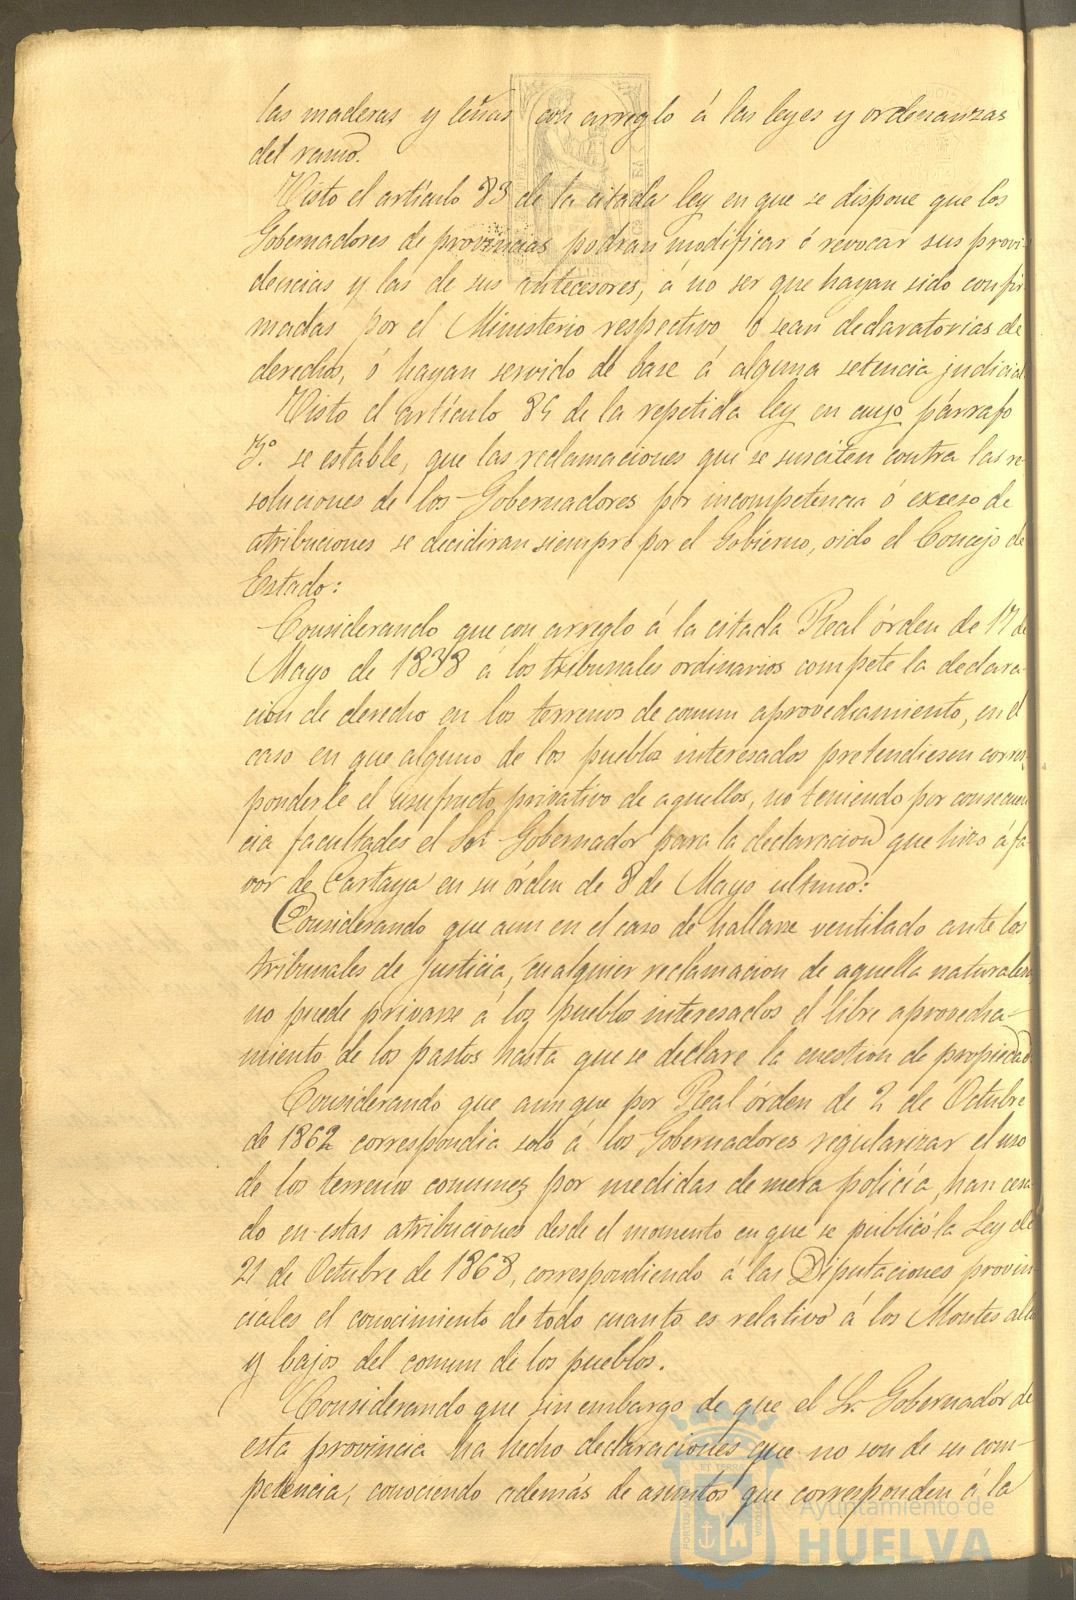 las maderas y leñas con arreglo á las leyes y ordenanzas
del ramo.
Visto el artículo 83 de la citada ley en que se dispone que los
Gobernadores de provincias podran modificar ó revocar sus provi-
dencias y las de sus antecesores, á no ser que hayan sido confir
madas por el Ministerio respectivo, ó sean declaratorias de
derechos, ó hayan servido de base á alguna setencia judicial
Visto el artículo 84 de la repetida ley en cuyo párrafo
3.º se estable, que las reclamaciones que se susciten contra las re
soluciones de los Gobernadores por incompetencia ó exceso de
atribuciones se decidiran siempre por el Gobierno, oido el Concejo de
Estado:
Considerando que con arreglo á la citada Real órden de 17 de
Mayo de 1838 á los tribunales ordinarios compete la declara-
ción de derecho en los terrenos de comun aprovechamiento, en el
caso en que alguno de los pueblos interesados pretendiesen corres
ponderle el usufructo privativo de aquellos, no teniendo por consecuen
cia facultades el Sr. Gobernador para la declaracion que hizo á fa
vor de Cartaya en su órden de 8 de Mayo ultimo:
Considerando que aun en el caso de hallarse ventilado ante los
tribunales de Justicia, cualquier reclamacion de aquella naturaleza
no puede privarse á los pueblos interesados el libre aprovecha-
miento de los pastos hasta que se declare la cuestion de propiedad
Considerando que aunque por Real órden de 2 de Octubre
de 1862 correspondia solo á los Gobernadores regularizar el uso
de los terrenos comunes por medidas de mera policía, han cesa
do en estas atribuciones desde el momento en que se publicó la Ley de
21 de Octubre de 1868, correspondiendo á las Diputaciones provin
ciales el conocimiento de todo cuanto es relativo á los Montes altos
y bajos del comun de los pueblos.
Considerando que sin embargo de que el Sr. Gobernador de
esta provincia ha hecho declaraciones que no son de su com-
petencia, conociendo además de asuntos que corresponden á la
Ayuntamiento de
HUELVA